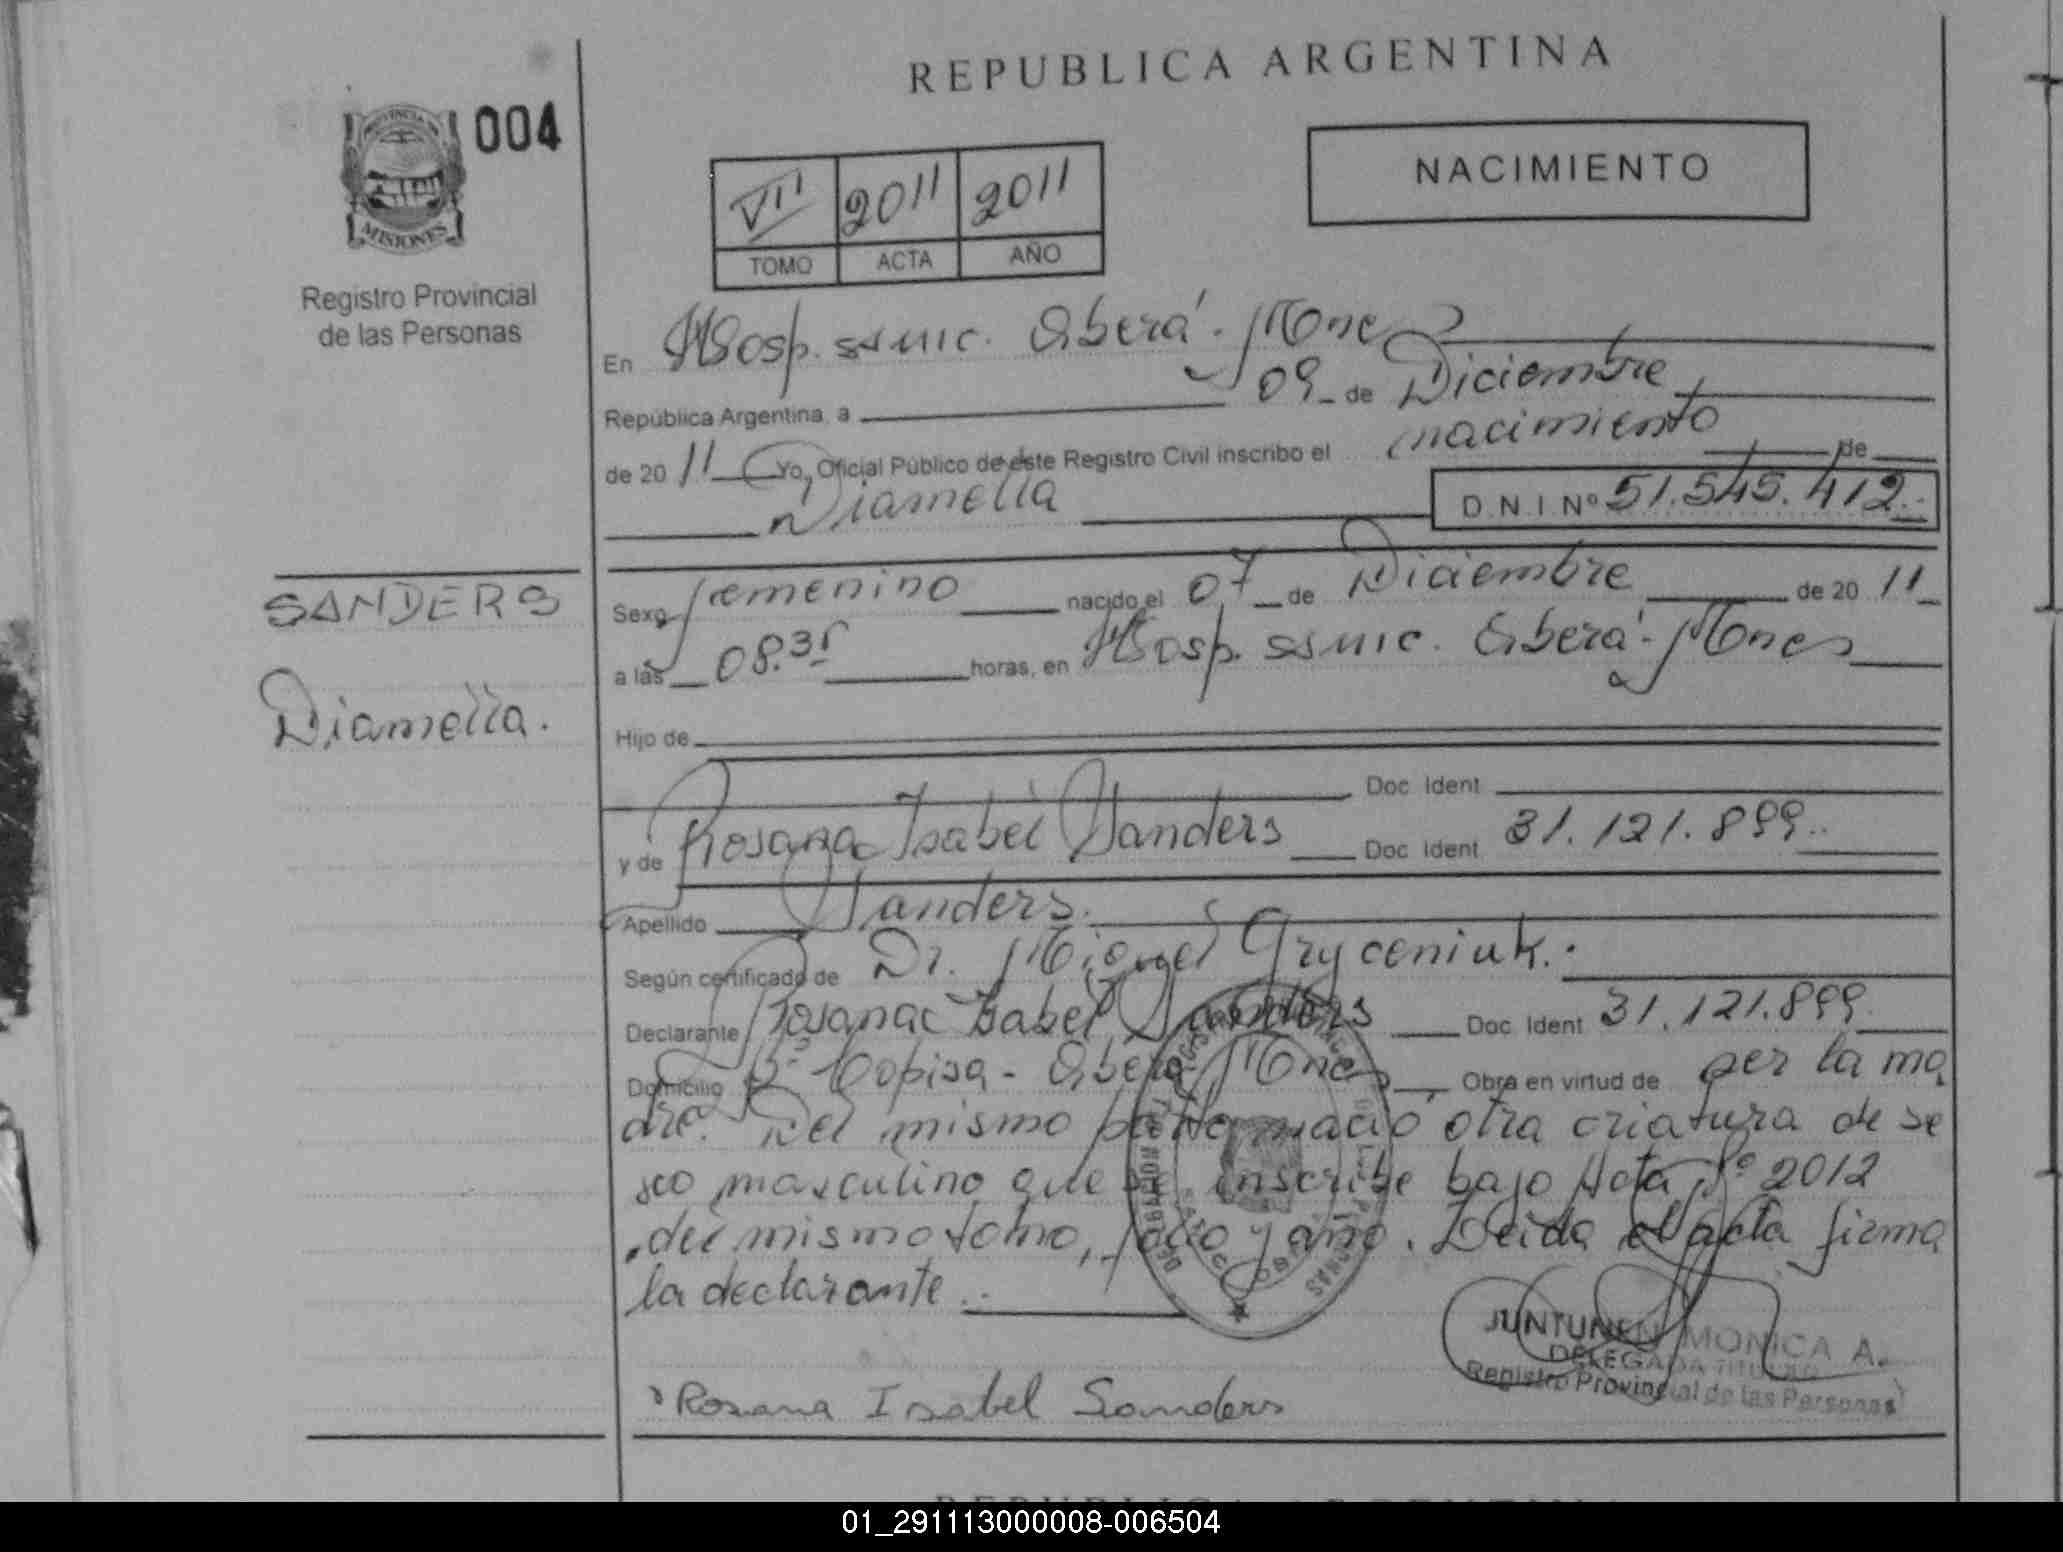 REPUBLICA ARGENTINA
PROVINCIA DE
MISIONES
004
Registro Provincial
de las Personas
VII 2011 2011
TOMO ACTA AÑO
NACIMIENTO
En Hosp. ssmic. Oberá - Mnes
República Argentina, a 09 de Diciembre
de 2011 Yo, Oficial Público de éste Registro Civil inscribo el nacimiento de
Diamella D.N.I. Nº 51.545.412.-
SANDERS
Diamella.
Sexo femenino nacido el 07 de Diciembre de 2011
a las 08.35 horas, en Hosp. ssmic. Oberá - Mnes
Hijo de
Doc. Ident
y de Rosana Isabel Sanders Doc. Ident 31.121.899.-
Apellido Sanders.
Según certificado de Dr. Miguel Gryceniuk.-
Declarante Rosana Isabel Sanders Doc. Ident 31.121.899
Domicilio Bº Copisa - Oberá Mnes Obra en virtud de ser la ma
dre. Del mismo parto nació otra criatura de se
xo masculino que se inscribe bajo Acta Nº 2012
del mismo tomo, folio y año. Leida el acta firma
la declarante.-
Rosana Isabel Sanders
JUNTUNEN MONICA A.
DELEGADA TITULAR
Registro Provincial de las Personas
01_291113000008-006504